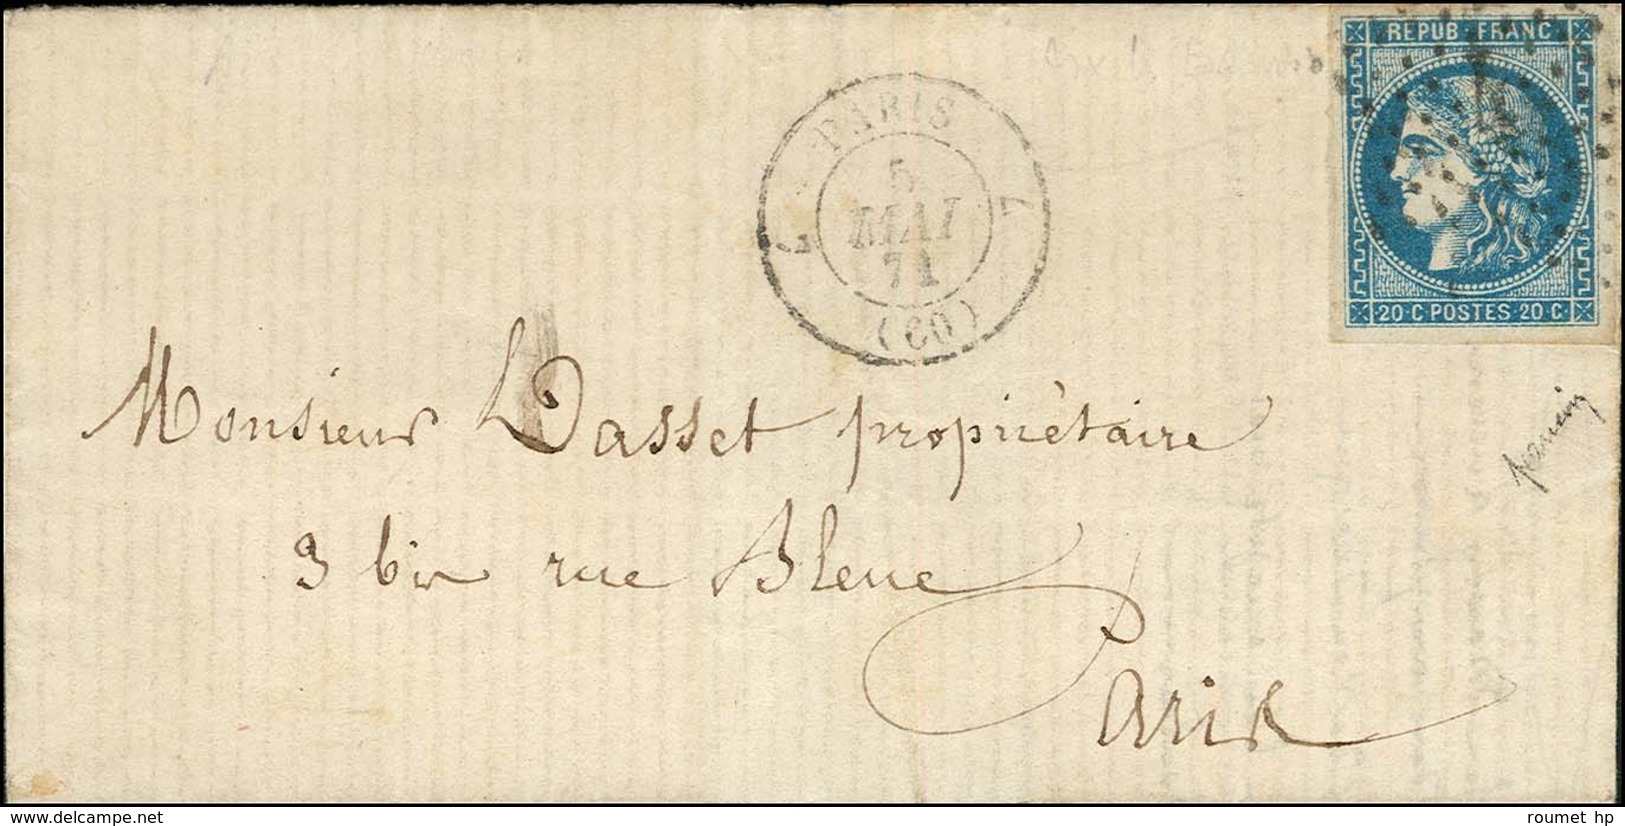 REPUB FRANC
PARIS
5
MAI
71
(60)
20 C POSTES 20 C
Monsieur Dasset propriétaire
3 bis rue Bleue
Paris
roumet hp